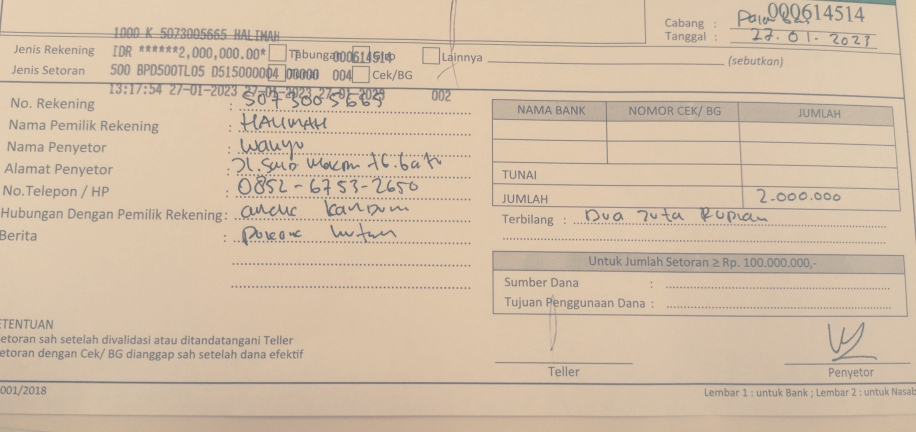 000614514
Cabang :
1000 K 5073005665 HALIMAH
Tanggal : 27.01.2023
Jenis Rekening IDR ******2,000,000.00* Tabungan 000614514 Lainnya (sebutkan)
Jenis Setoran 500 BPD500TL05 D515000004 00000 004 Cek/BG
13:17:54 27-01-2023 27-01-2023 27-01-2023 002
No. Rekening : 5073005665
Nama Pemilik Rekening : HALIMAH
Nama Penyetor : Wahyu
Alamat Penyetor : Jl.
No.Telepon / HP : 0852-6753-2650
Hubungan Dengan Pemilik Rekening:
Berita :
NAMA BANK NOMOR CEK/ BG JUMLAH
TUNAI
JUMLAH 2.000.000
Terbilang : Dua Juta Rupiah
Untuk Jumlah Setoran ≥ Rp. 100.000.000,-
Sumber Dana :
Tujuan Penggunaan Dana :
ETENTUAN
etoran sah setelah divalidasi atau ditandatangani Teller
etoran dengan Cek/ BG dianggap sah setelah dana efektif
Teller
Penyetor
001/2018
Lembar 1 : untuk Bank ; Lembar 2 : untuk Nasab